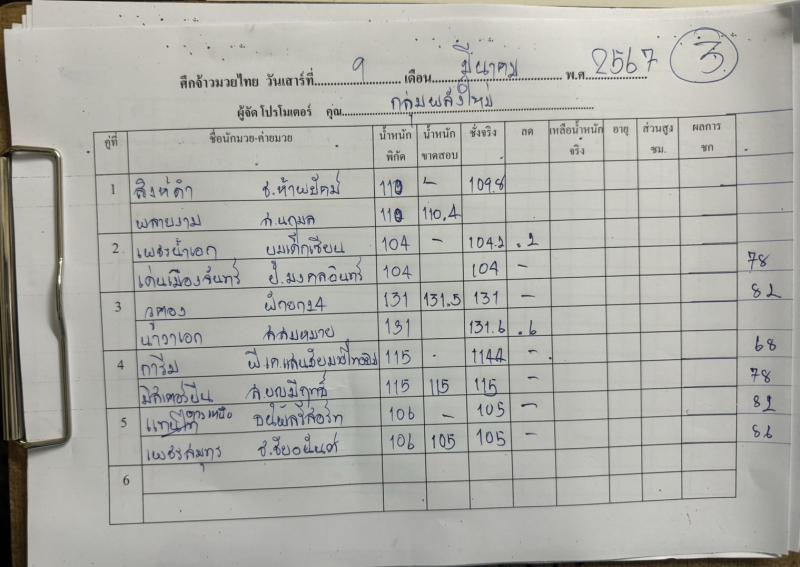 ศึกจ้าวมวยไทย วันเสาร์ที่ 9 เดือน มีนาคม พ.ศ. 2567 3
ผู้จัด โปรโมเตอร์ คุณ กลุ่มพลังใหม่
คู่ที่ ชื่อนักมวย-ค่ายมวย น้ำหนักพิกัด น้ำหนักขาดสอบ ชั่งจริง ลด เหลือน้ำหนักจริง อายุ ส่วนสูง ซม. ผลการชก
1 สิงห์ดำ ช.ห้าพยัคฆ์ 110 - 109.8
พลายงาม ส.นฤมล 110 110.4
2 เพชรน้ำเอก ยิมเด็กเซียน 104 - 104.2 .2
เด่นเมืองจันทร์ ป.มงคลอินทร์ 104 104 - 78
3 วูตอง 131 131.5 131 - 82
นาวาเอก ส.สมหมาย 131 131.6 .6
4 การีม พี.เค.แสนชัยมวยไทยยิม 115 - 114.4 - 68
มิสเตอร์ยีน ส.บุญมีฤทธิ์ 115 115 115 - 78
5 106 - 105 - 82
เพชรสมุทร ช.ชัยอนันต์ 106 105 105 - 86
6